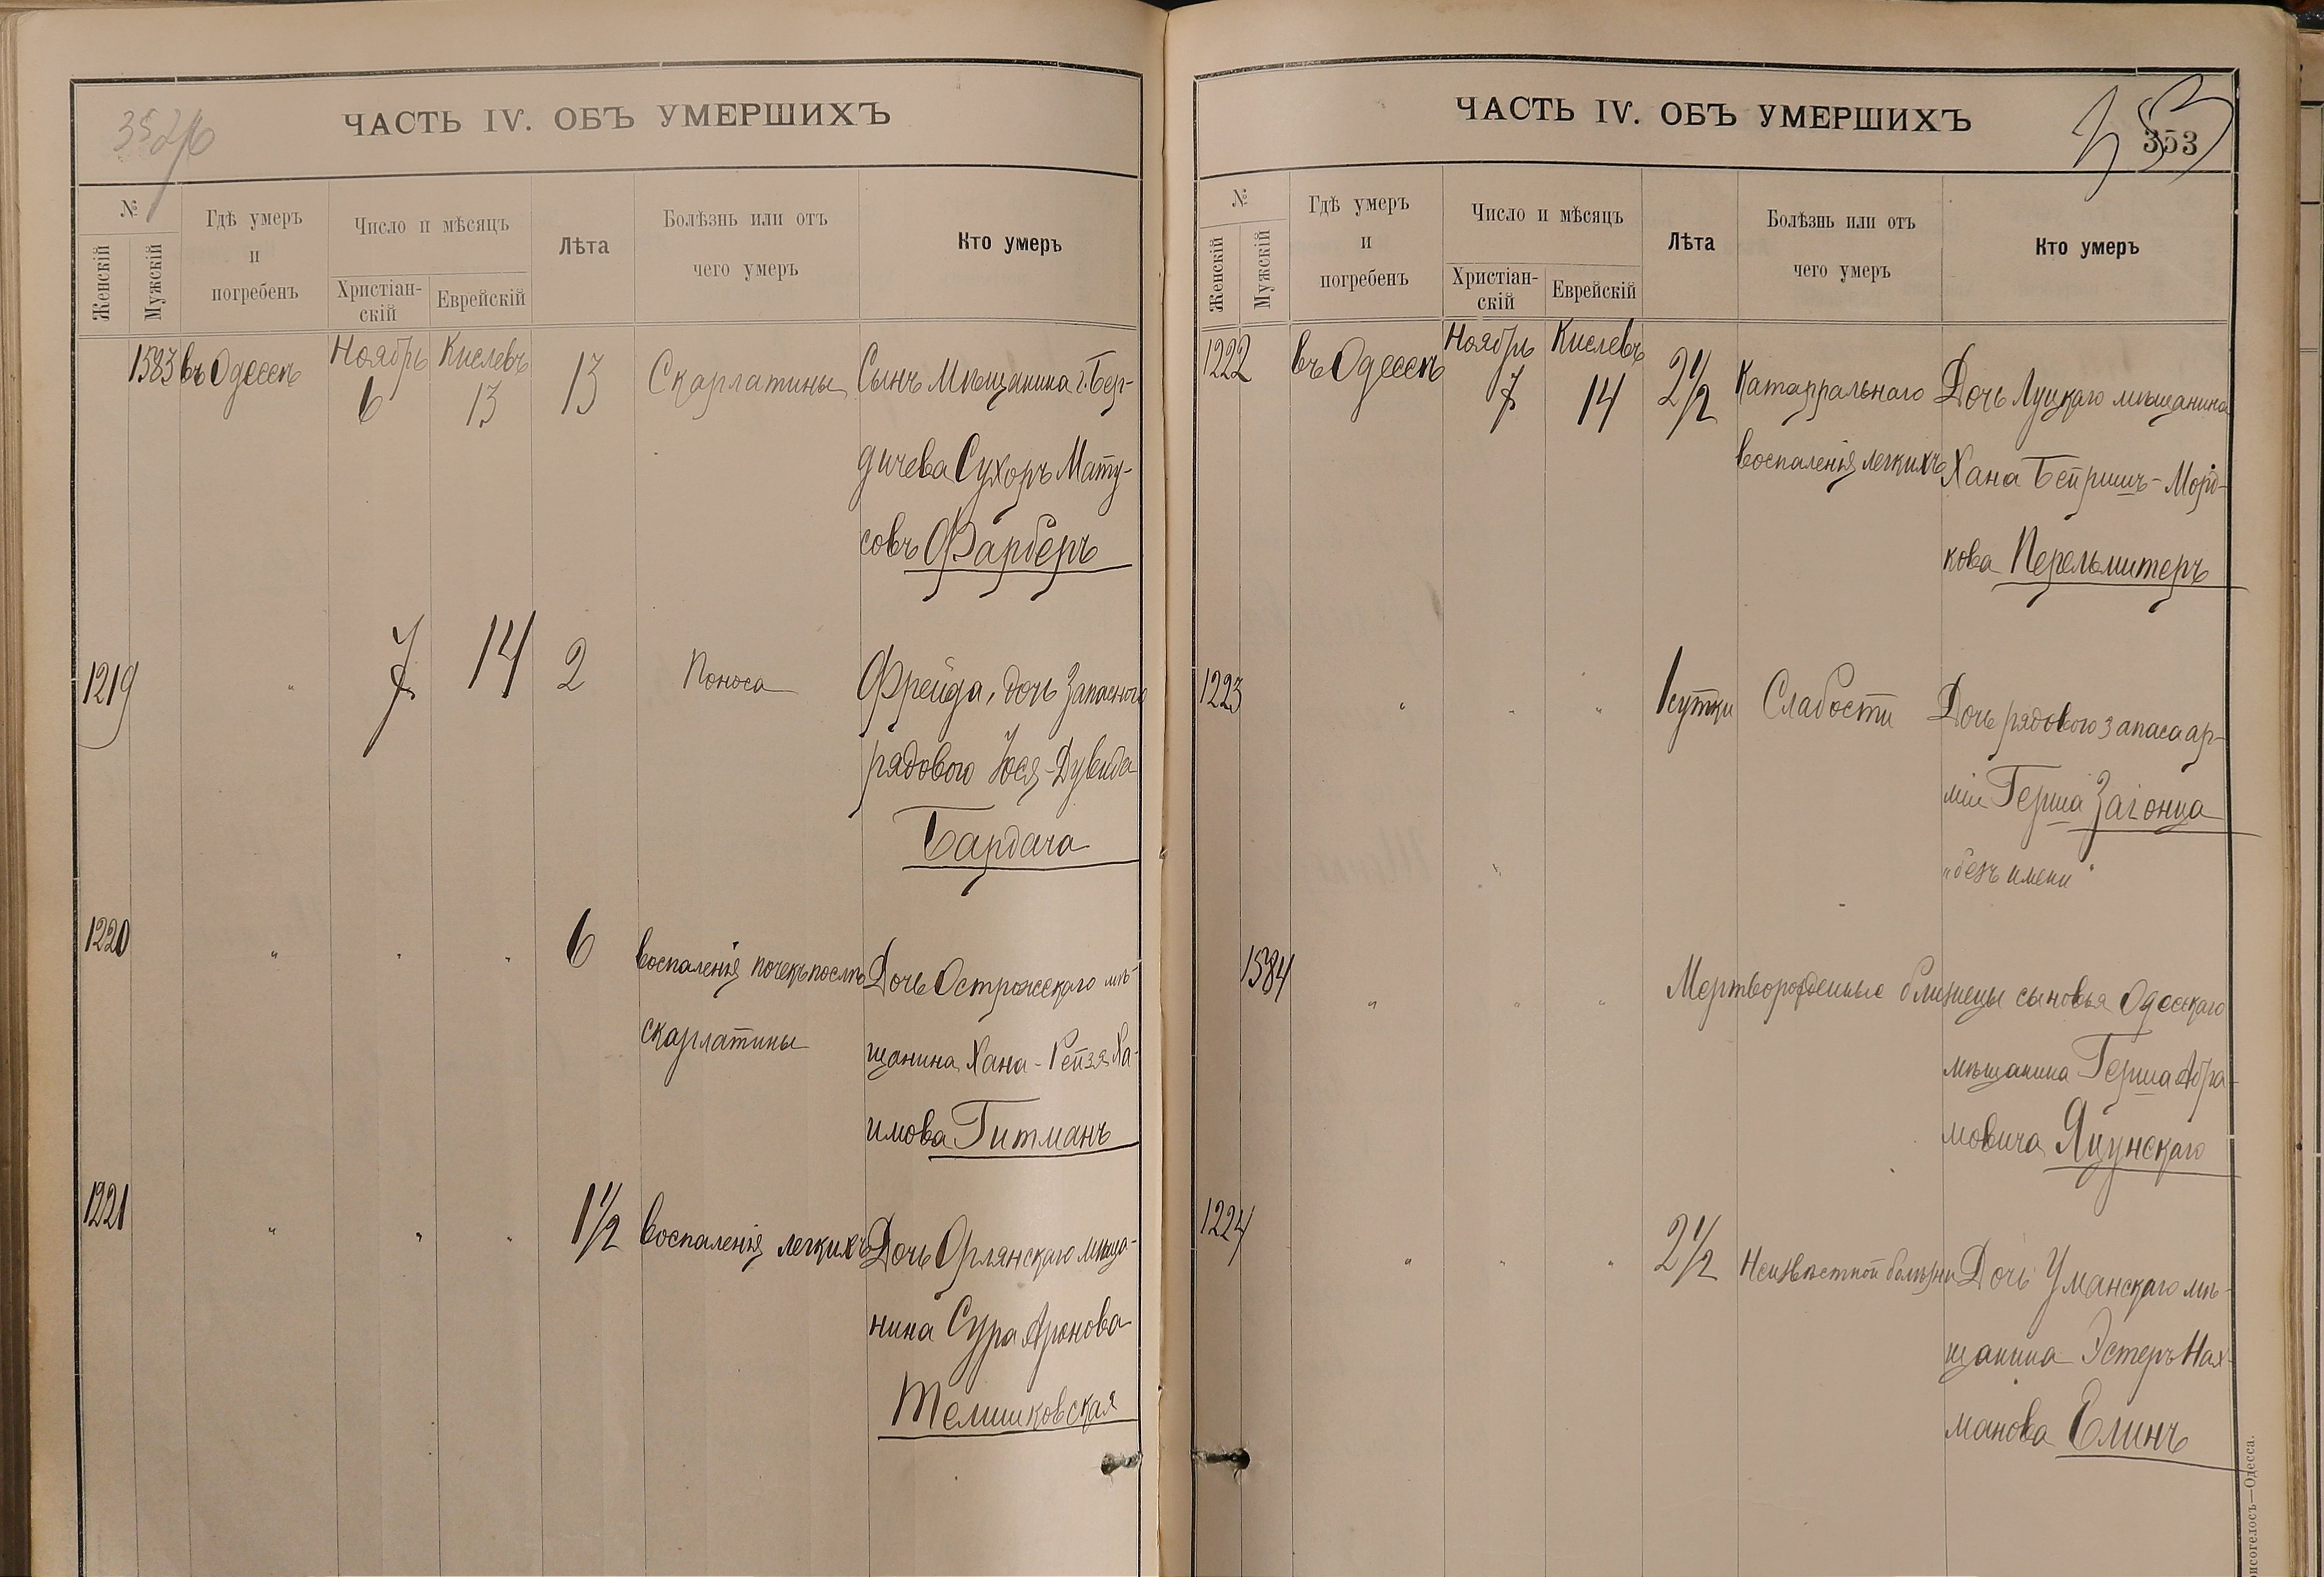 352/б
ЧАСТЬ IV. ОБЪ УМЕРШИХЪ
№
Женскій
Мужскій
Гдѣ умеръ
и
погребенъ
Число и мѣсяцъ
Христіан-
скій
Еврейскій
Лѣта
Болѣзнь или отъ
чего умеръ
Кто умеръ
1583 въ Одессѣ Ноябрь 6 Кислевъ 13 13 Скарлатины Сынъ Мѣщанина г. Бер-
дичева Сухоръ Мату-
совъ Фарберъ
1219 " 7 14 2 Поноса Фрейда, дочь Запасного
рядового Іося-Дувида
Бардача
1220 " " " 6 воспаленія почекъ послѣ Дочь Острожскаго мѣ-
скарлатины щанина Хана-Рейзя Ха-
имова Гитманъ
1221 " " " 1 1/2 воспаленія легкихъ Дочь Орлянскаго мѣща-
нина Сура Аронова
Телишковская
ЧАСТЬ IV. ОБЪ УМЕРШИХЪ
353
353
№
Женскій
Мужскій
Гдѣ умеръ
и
погребенъ
Число и мѣсяцъ
Христіан-
скій
Еврейскій
Лѣта
Болѣзнь или отъ
чего умеръ
Кто умеръ
1222 въ Одессѣ Ноябрь 7 Кислевъ 14 2 1/2 Катаррального Дочь Луцкаго мѣщанина
воспаленія легкихъ Хана Бейришъ-Морд-
кова Перельмитеръ
1223 " " " 1 сутки Слабости Дочь рядового запаса ар-
міи Герша Загонца
„безъ имени"
1584 " " " Мертворожденные близнецы сыновья Одесскаго
мѣщанина Герша Абра-
мовича Яцунскаго
1224 " " " 2 1/2 Неизвѣстной болѣзни Дочь Уманскаго мѣ-
щанина Эстеръ Нах-
манова Елинъ
—Одесса.